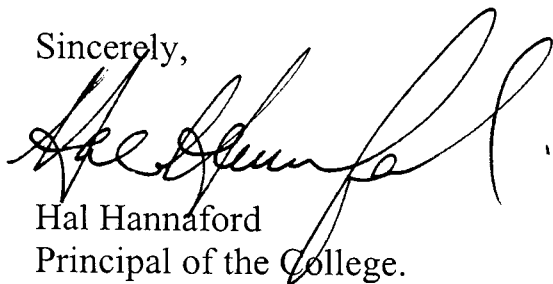 Sincerely,
Hal Hannaford
Hal Hannaford
Principal of the College.